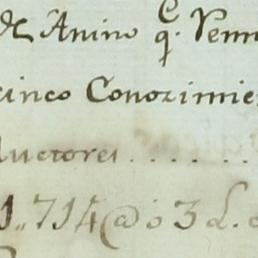 Anino q.e
cinco Conozimie
uctores ......
1,,714@ò 3 L.